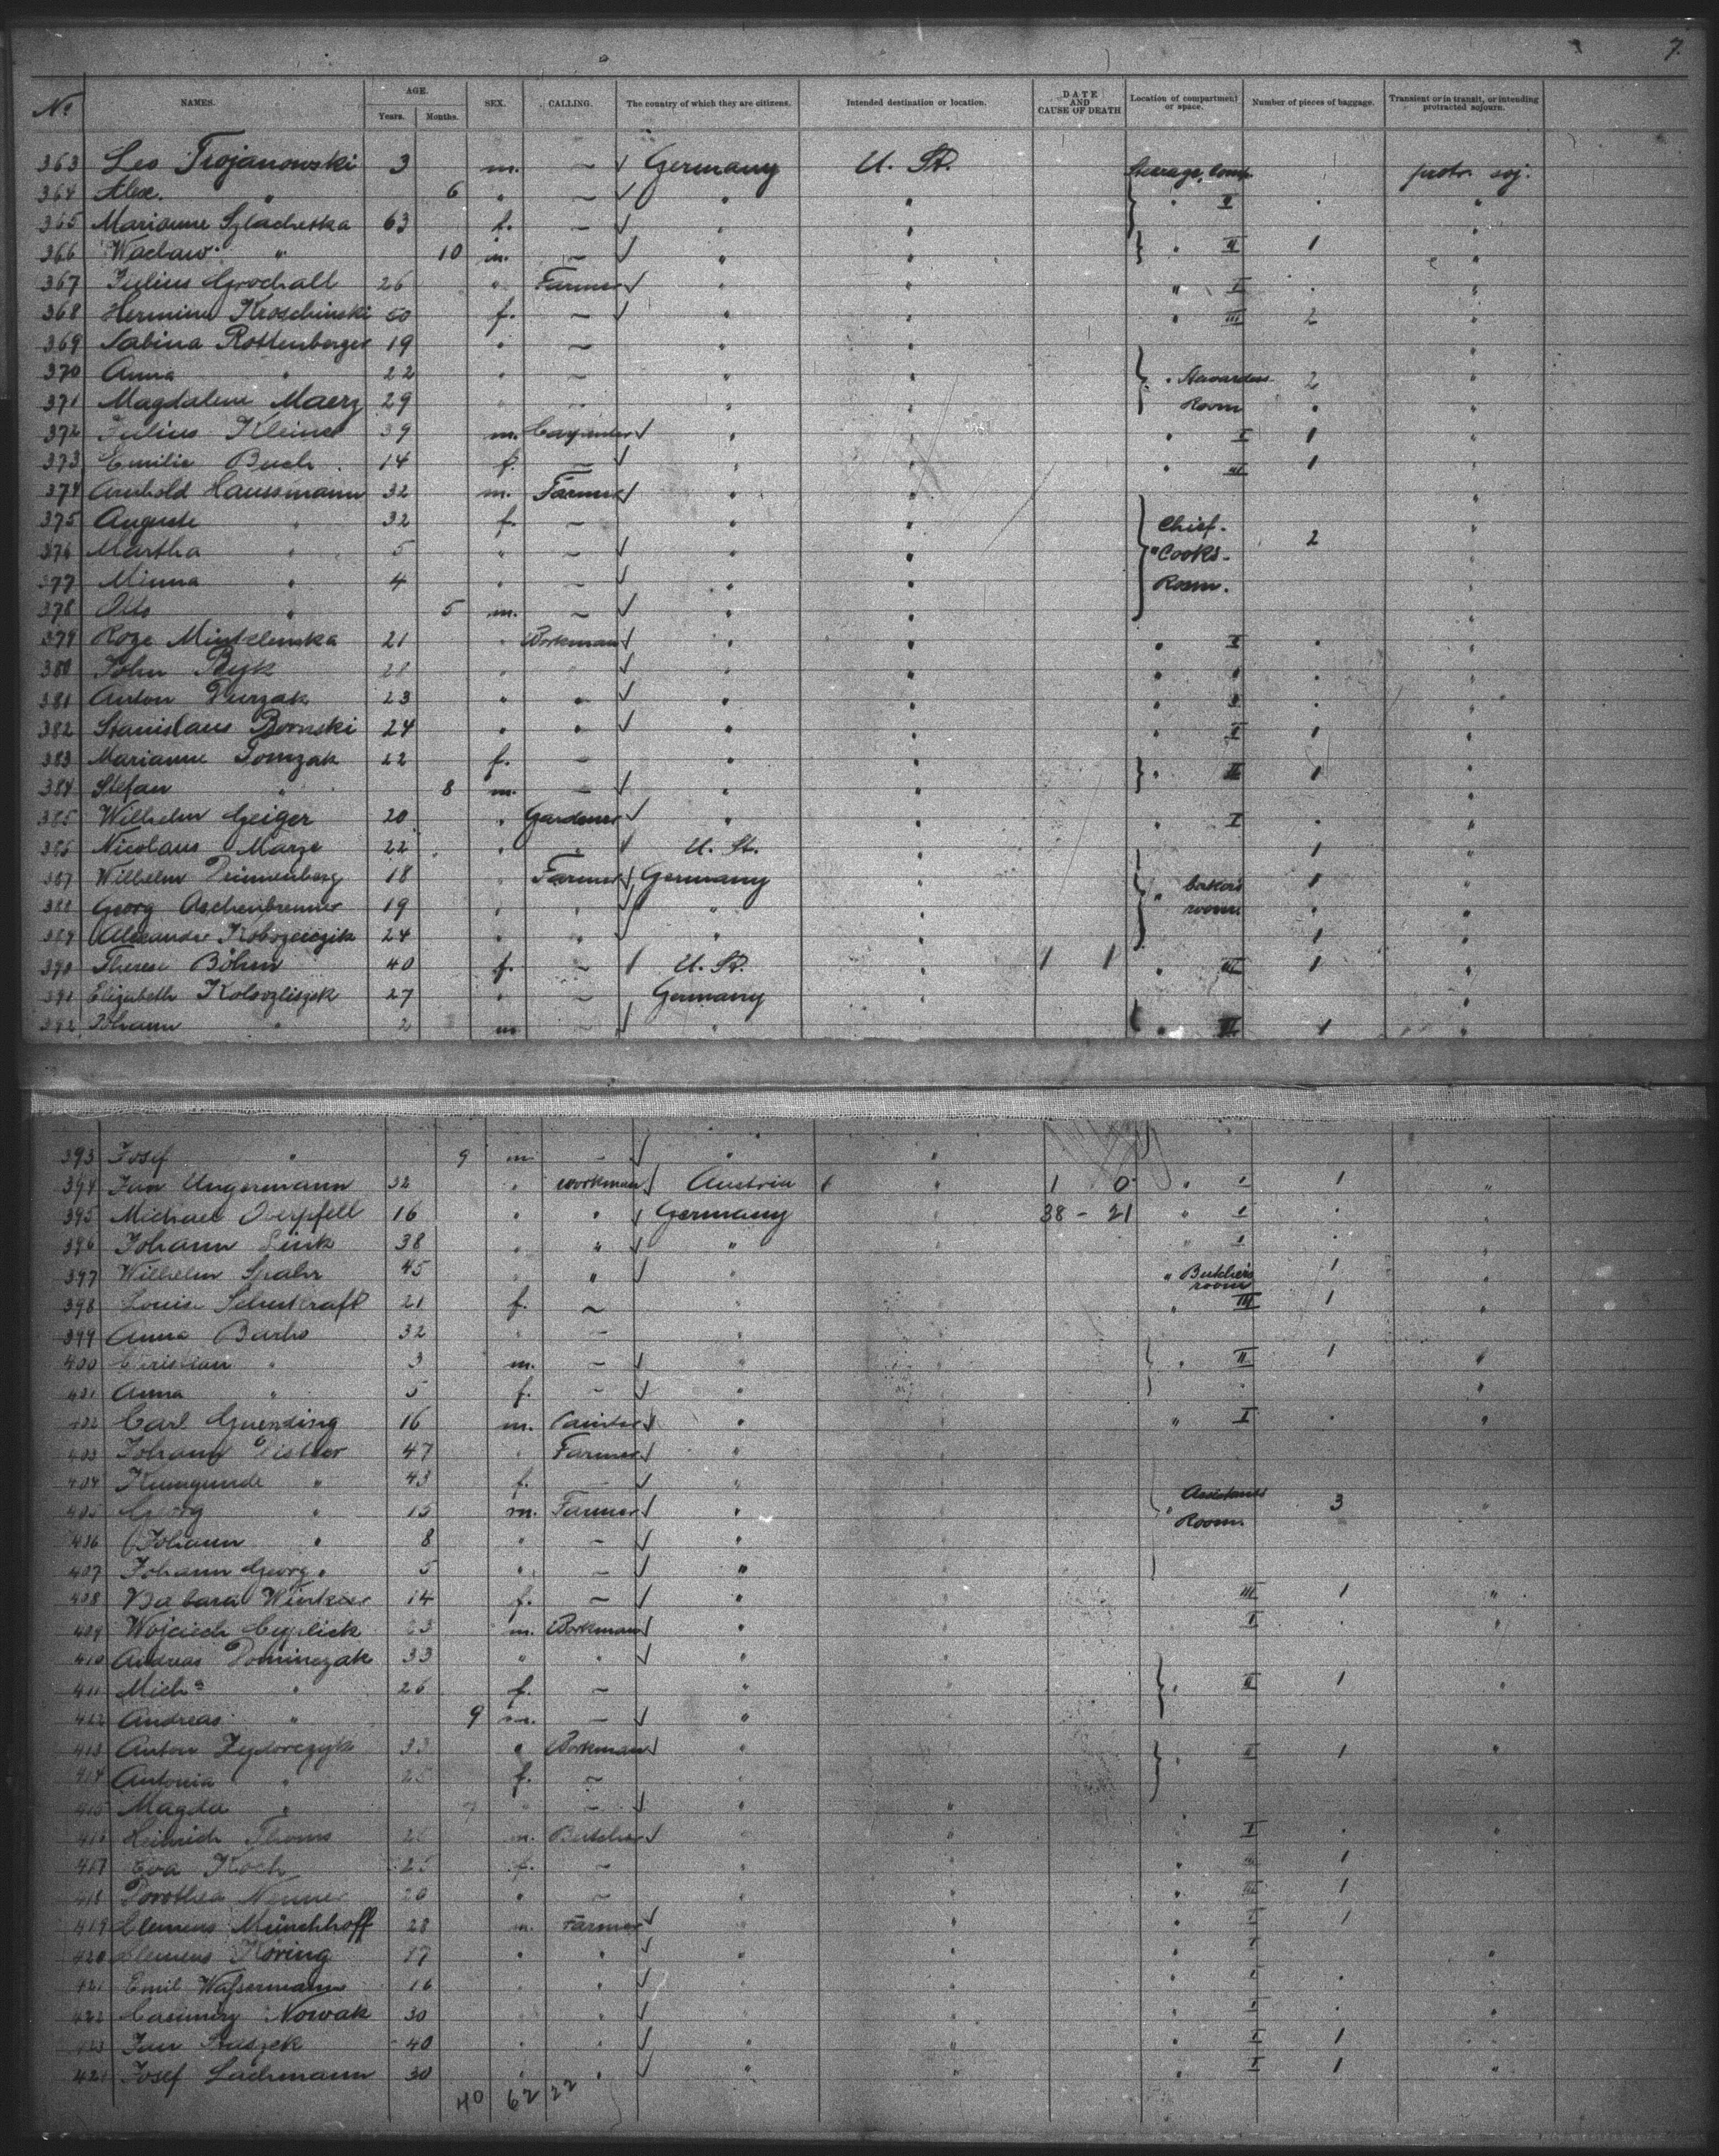 7.
No NAMES. AGE. Years. Months. SEX. CALLING. The country of which they are citizens. Intended destination or location. DATE AND CAUSE OF DEATH Location of compartment or space. Number of pieces of baggage. Transient or in transit, or intending protracted sojourn.
363 Leo Trojanowski 3 m. — ✓ Germany U. St. Steerage, comp. protr. soj.
364 Alex. " 6 " — ✓ " " " II " "
365 Marianne Szlacheska 63 f. — ✓ " " "
366 Waclaw " 10 m. — ✓ " " " II 1 "
367 Julius Grochall 26 " Farmer ✓ " " " I " "
368 Hermine Kroschinski 50 f. — ✓ " " " III 2 "
369 Sabina Rottenberger 19 " — " " "
370 Anna " 22 " — " " " Stewardess 2 "
371 Magdalene Maerz 29 " " " Room " "
372 Julius Kleine 39 m. Carpenter ✓ " " " I 1 "
373 Emilie Buch 14 f. — ✓ " " " III 1 "
374 Arnhold Haussmann 32 m. Farmer ✓ " " "
375 Auguste " 32 f. — " " Chief. "
376 Martha " 5 " — ✓ " " " Cooks. 2 "
377 Minna " 4 " — ✓ " " Room. "
378 Otto " 5 m. — ✓ " " "
379 Roze 21 " Workman ✓ " " " I " "
380 John Byk 28 " " ✓ " " " " " "
381 Anton 23 " " ✓ " " " " " "
382 Stanislaus Bornski 24 " " ✓ " " " I " "
383 Marianne Tomzak 22 f. — " " " II 1 "
384 Stefan " 8 m. — ✓ " " "
385 Wilhelm Geiger 20 " Gardener ✓ " " " I " "
386 Nicolaus Marze 22 " " ✓ U. St. " 1 "
387 Wilhelm 18 " Farmer ✓ Germany " " bakers 1 "
388 Georg Aschenbrenner 19 " " ✓ " " room " "
389 Alexander 24 " " ✓ " " 1 "
390 Therese Böhm 40 f. — / U. St. " 1 1 " III 1 "
391 Elizabeth 27 " — Germany " "
392 Johann " 2 m — ✓ " " II 1 "
393 Josef " 9 m — ✓ " "
394 Jan Ungermann 32 " workman ✓ Austria " 1 0 " I 1 "
395 Michael Overpfell 16 " " ✓ Germany " 38 - 21 " I "
396 Johann Link 38 " " ✓ " " " I " "
397 Wilhelm Spahr 45 " " ✓ " " Butcher's room 1 "
398 Louise Schutkraft 21 f. — " " III 1 "
399 Anna 32 " — "
400 Christian " 3 m. — ✓ " " II 1 "
401 Anna " 5 f. — ✓ " " "
402 Carl Guending 16 m. Painter ✓ " " I " "
403 Johann 47 " Farmer ✓ "
404 Kunigunde " 43 f. — ✓ "
405 Georg " 15 m. Farmer ✓ " " Assistants Room. 3 "
406 Johann " 8 " — ✓ "
407 Johann Georg " 5 " — ✓ "
408 Barbara 14 f. — ✓ " III 1 "
409 Wojciech 23 m. Workman ✓ " I " "
410 Andreas Dominczak 33 " " ✓ " "
411 " 26 f. — " " " II 1 "
412 Andreas " 9 m. — ✓ "
413 Anton 33 " Workman ✓ " " II 1 "
414 Antonia " 25 f. — "
415 Magda " — ✓ " "
416 Heinrich Thoms m. Butcher ✓ " " " I " "
417 Eva Koch 25 f. — " " " III 1
418 Dorothea 20 " — " " " III 1
419 Clemens Münchhoff 28 m. Farmer ✓ " " " I 1
420 Clemens Köring 17 " " ✓ " " " I "
421 Emil Waßermann 16 " " ✓ " " " I "
422 Casimirz Nowak 30 " " ✓ " " " I " "
423 Jan 40 " " ✓ " " " I 1 "
424 Josef Lachmann 30 " " ✓ " " " I 1 "
40 62 22